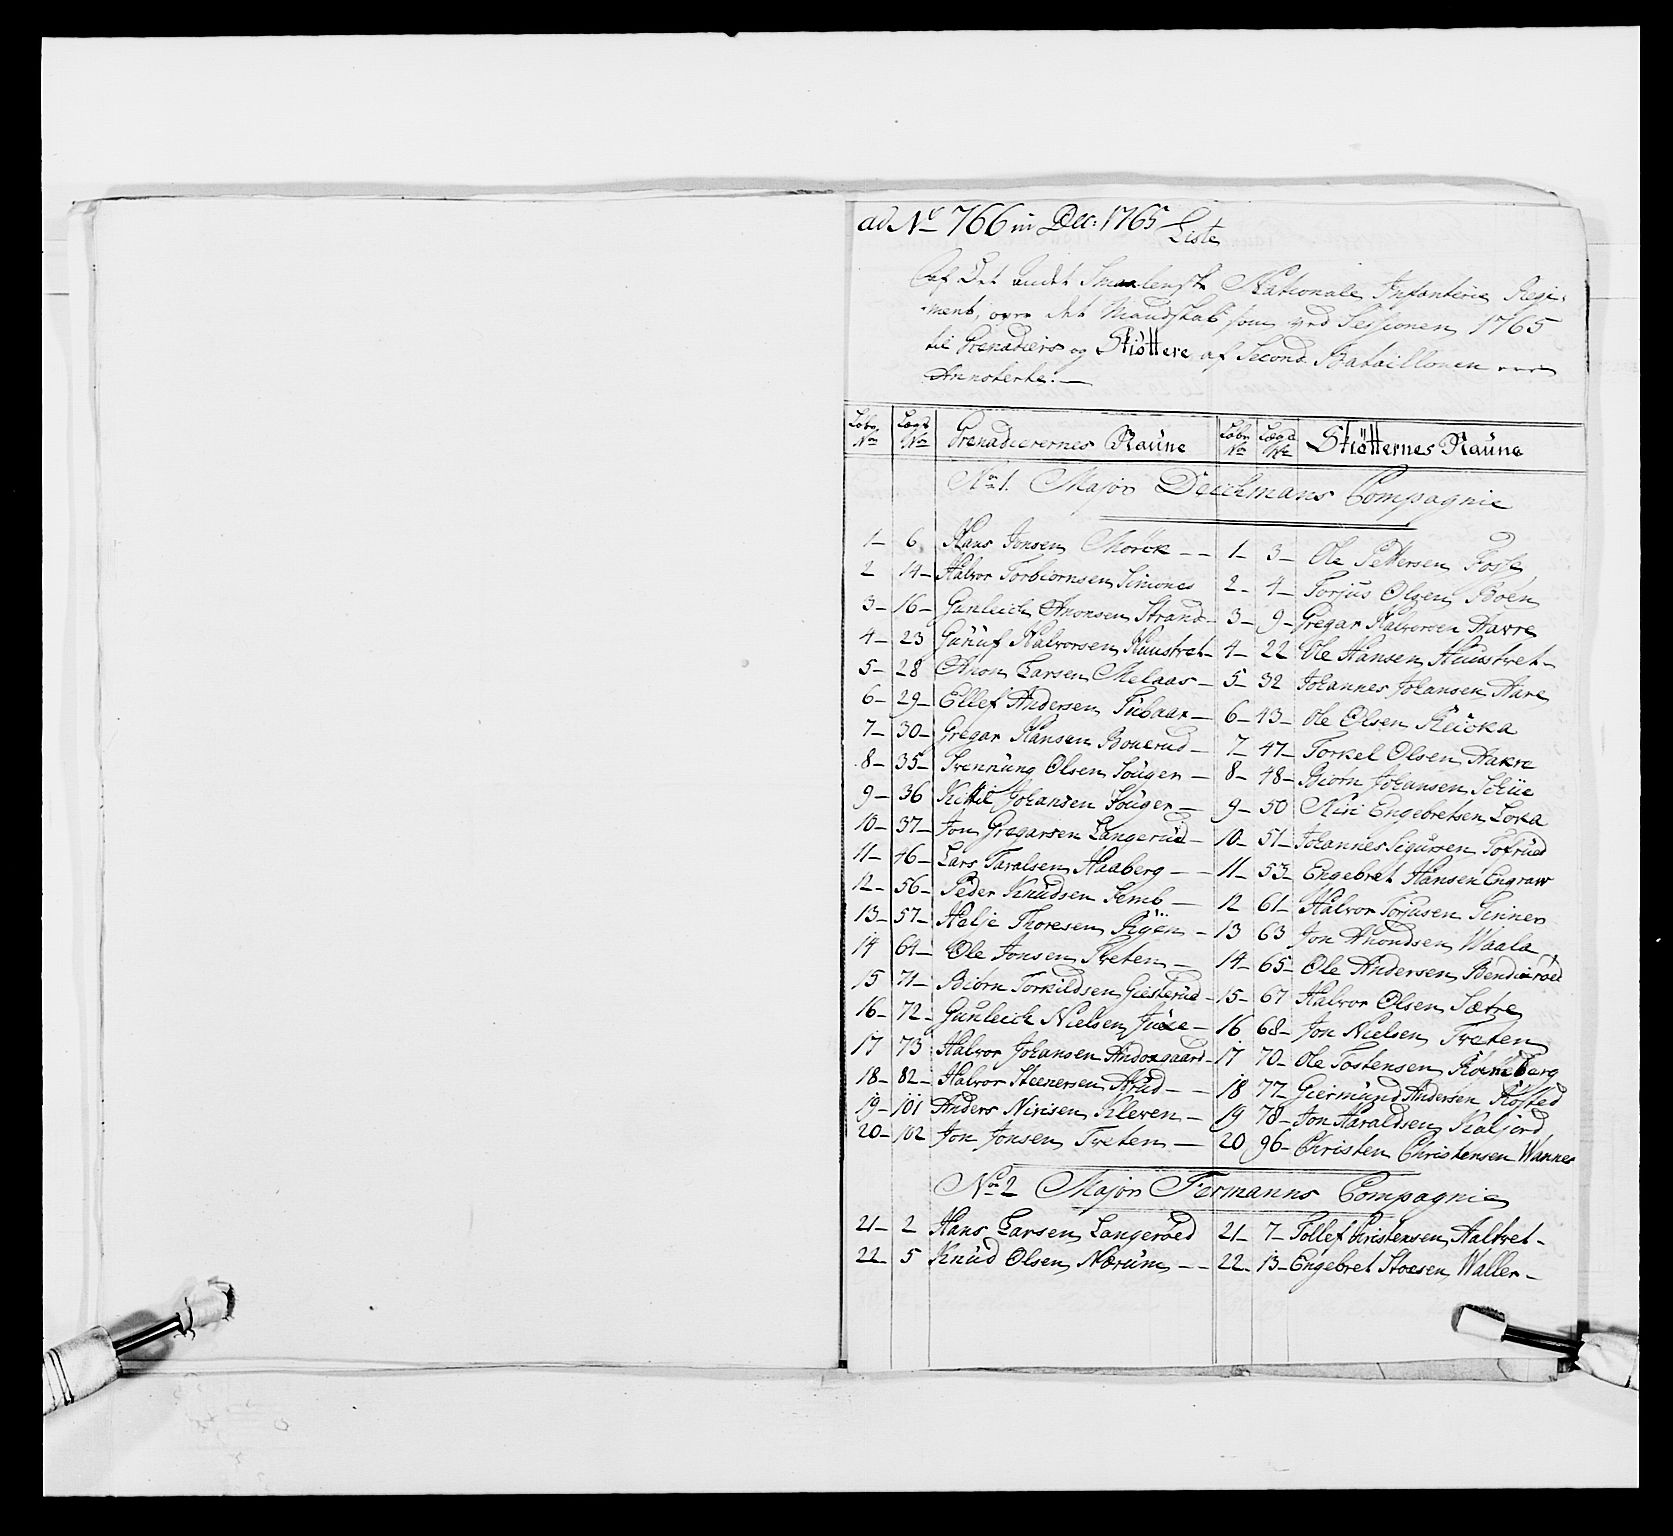 ad No 766 in Dec: 1765
Liste
af Det andet Smaalenske Nationale Infanterie Regi-
ment, over det Mandskab som ved Sessionen 1765
til Grenadiers og Skiöttere af Second Bataillonen ere
Antegnede:
Løbe No Lægd No Grenadierernes Naune Løbe No Lægd No Skiötternes Naune
No 1. Major Deichmans Compagnie
1 6 Hans Jonsen 1 3 Ole Pettersen Fosse
2 14 Halvor Torbiornsen Simones 2 4 Torjus Olsen Boen
3 16 Gunleich Strand 3 9 Gregar Halvorsen Havre
4 23 Gunuf Halvorsen Haustvet 4 22 Ole Hansen Haustvet
5 28 Amon Larsen Melaas 5 32 Johannes Johansen Aare
6 29 Ellef Andersen Tubaar 6 43 Ole Olsen
7 30 Gregar Hansen Bouerud 7 47 Torkel Olsen Hakre
8 35 Svennung Olsen Souger 8 48 Biörn Johansen Schue
9 36 Kittil Johansen Souger 9 50 Engebretsen Loka
10 37 Jon Gregarsen Langerud 10 51 Johannes Sigursen Tofrud
11 46 Lars Taralsen Haaberg 11 53 Engebret Hansen Engraw
12 56 Peder Knudsen Semb 12 61 Halvor Torjusen Sinnes
13 57 Helje Thoresen 13 63 Jon Amondsen Waala
14 64 Ole Jonsen Tveten 14 65 Ole Andersen
15 71 Biörn Torkildsen Giesterud 15 67 Halvor Olsen Sætre
16 72 Gunleich Nielsen Juve 16 68 Jon Nielsen Tveten
17 73 Halvor Johansen 17 70 Ole Tostensen
18 82 Halvor Steenersen 18 77 Giermund Andersen
19 101 Anders Nirisen Kleven 19 78 Jon Haraldsen Kaljord
20 102 Jon Jonsen Tveten 20 96 Christen Christensen Wannes
No 2 Major Fermanns Compagnie
21 2 Hans Larsen Langeroed 21 7 Tollef Christensen Aaltvet
22 5 Knud Olsen Nærum 22 13 Engebret Waller